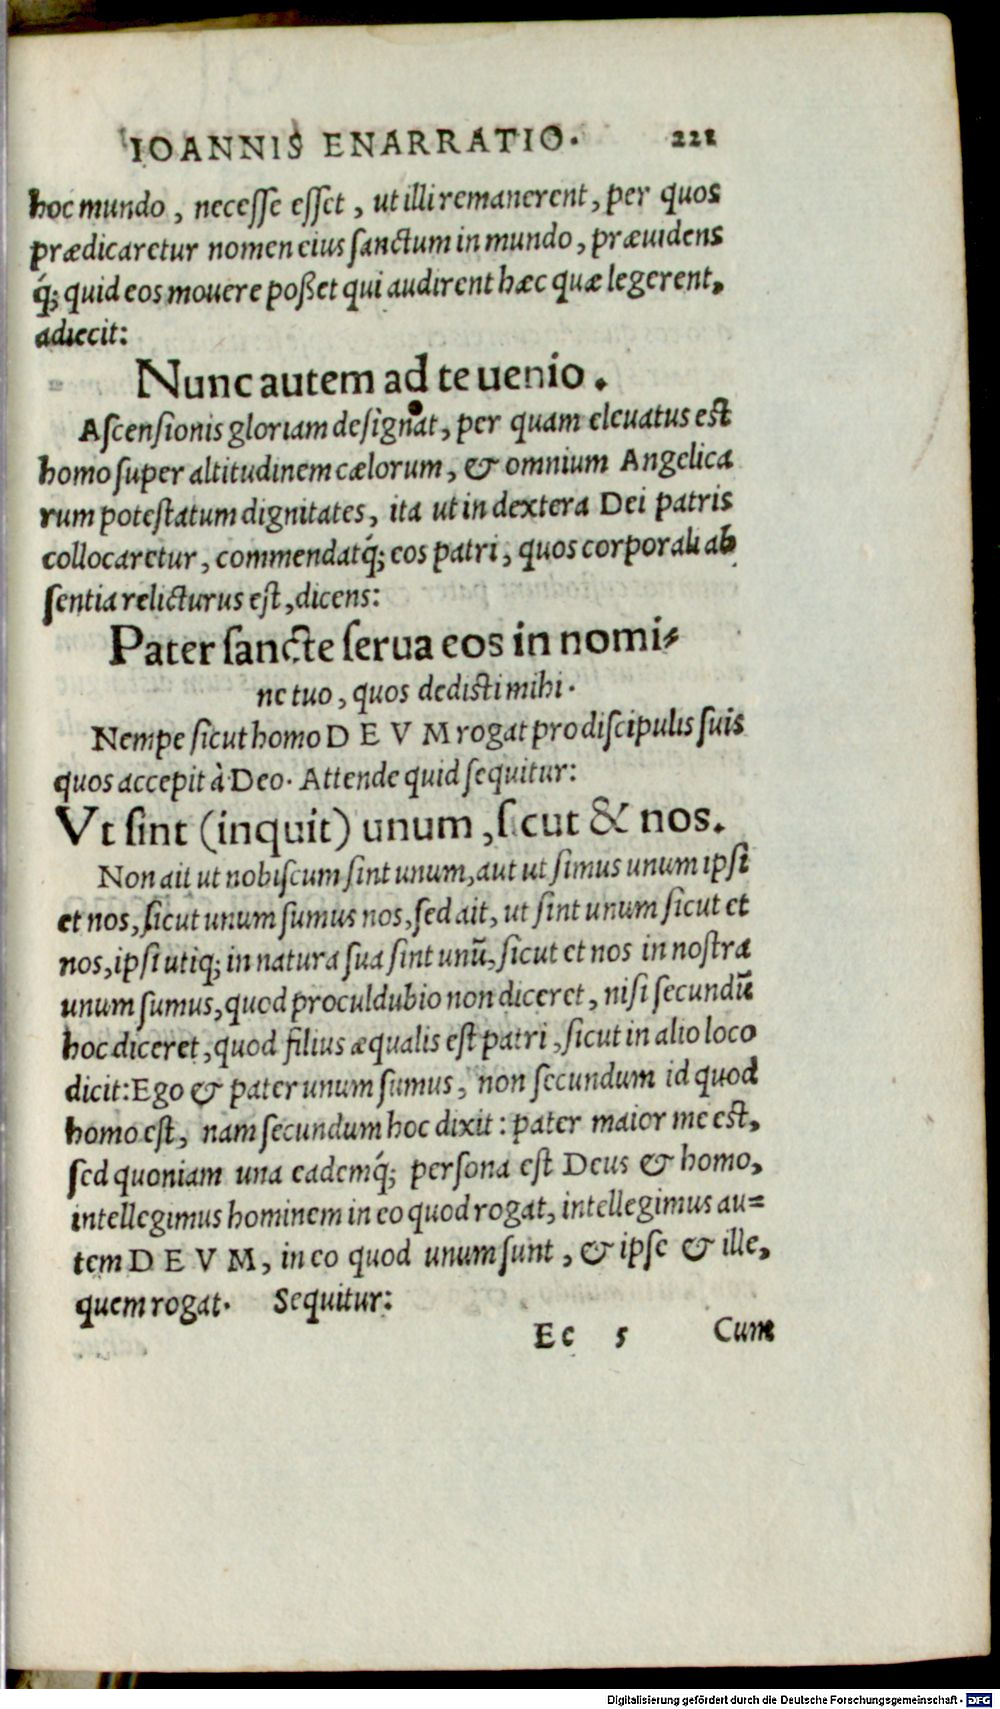 IOANNIS ENARRATIO. 221
hoc mundo, necesse esset, ut illi remanerent, per quos
prædicaretur nomen eius sanctum in mundo, præuidens
q́; quid eos mouere poßet qui audirent hæc quæ legerent,
adiecit:
Nunc autem ad te uenio.
Ascensionis gloriam designat, per quam eleuatus est
homo super altitudinem cælorum, & omnium Angelica
rum potestatum dignitates, ita ut in dextera Dei patris
collocaretur, commendatq́; eos patri, quos corporali ab
sentia relicturus est, dicens:
Pater sancte serua eos in nomi-
ne tuo, quos dedisti mihi.
Nempe sicut homo DEVM rogat pro discipulis suis
quos accepit à Deo. Attende quid sequitur:
Vt sint (inquit) unum, sicut & nos.
Non ait ut nobiscum sint unum, aut ut simus unum ipsi
et nos, sicut unum sumus nos, sed ait, ut sint unum sicut et
nos, ipsi utiq; in natura sua sint unũ, sicut et nos in nostra
unum sumus, quod proculdubio non diceret, nisi secundũ
hoc diceret, quod filius æqualis est patri, sicut in alio loco
dicit: Ego & pater unum sumus, non secundum id quod
homo est, nam secundum hoc dixit: pater maior me est,
sed quoniam una eademq́; persona est Deus & homo,
intellegimus hominem in eo quod rogat, intellegimus au=
tem DEVM, in eo quod unum sunt, & ipse & ille,
quem rogat. Sequitur:
Ee 5 Cum
Digitalisierung gefördert durch die Deutsche Forschungsgemeinschaft - DFG